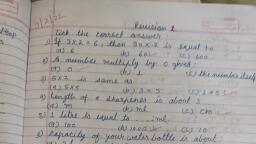 Revision 2
Tick the correct answer
1) If 3 x 2 = 6, then 30 x 2 is equal to
(a) 6 (b) 60 (c) 600
2) A number multiply by 0 gives:
(a) 0 (b) 1 (c) the number itself
3) 5x2 is same as
(a) 5x5 (b) 2x5
4) Length of a sharpener is about 3
(a) m (b) ml (c) cm
5) 1 litre is equal to ml
(a) 100 (b) 1000 (c) 10
6) Capacity of your water bottle is about